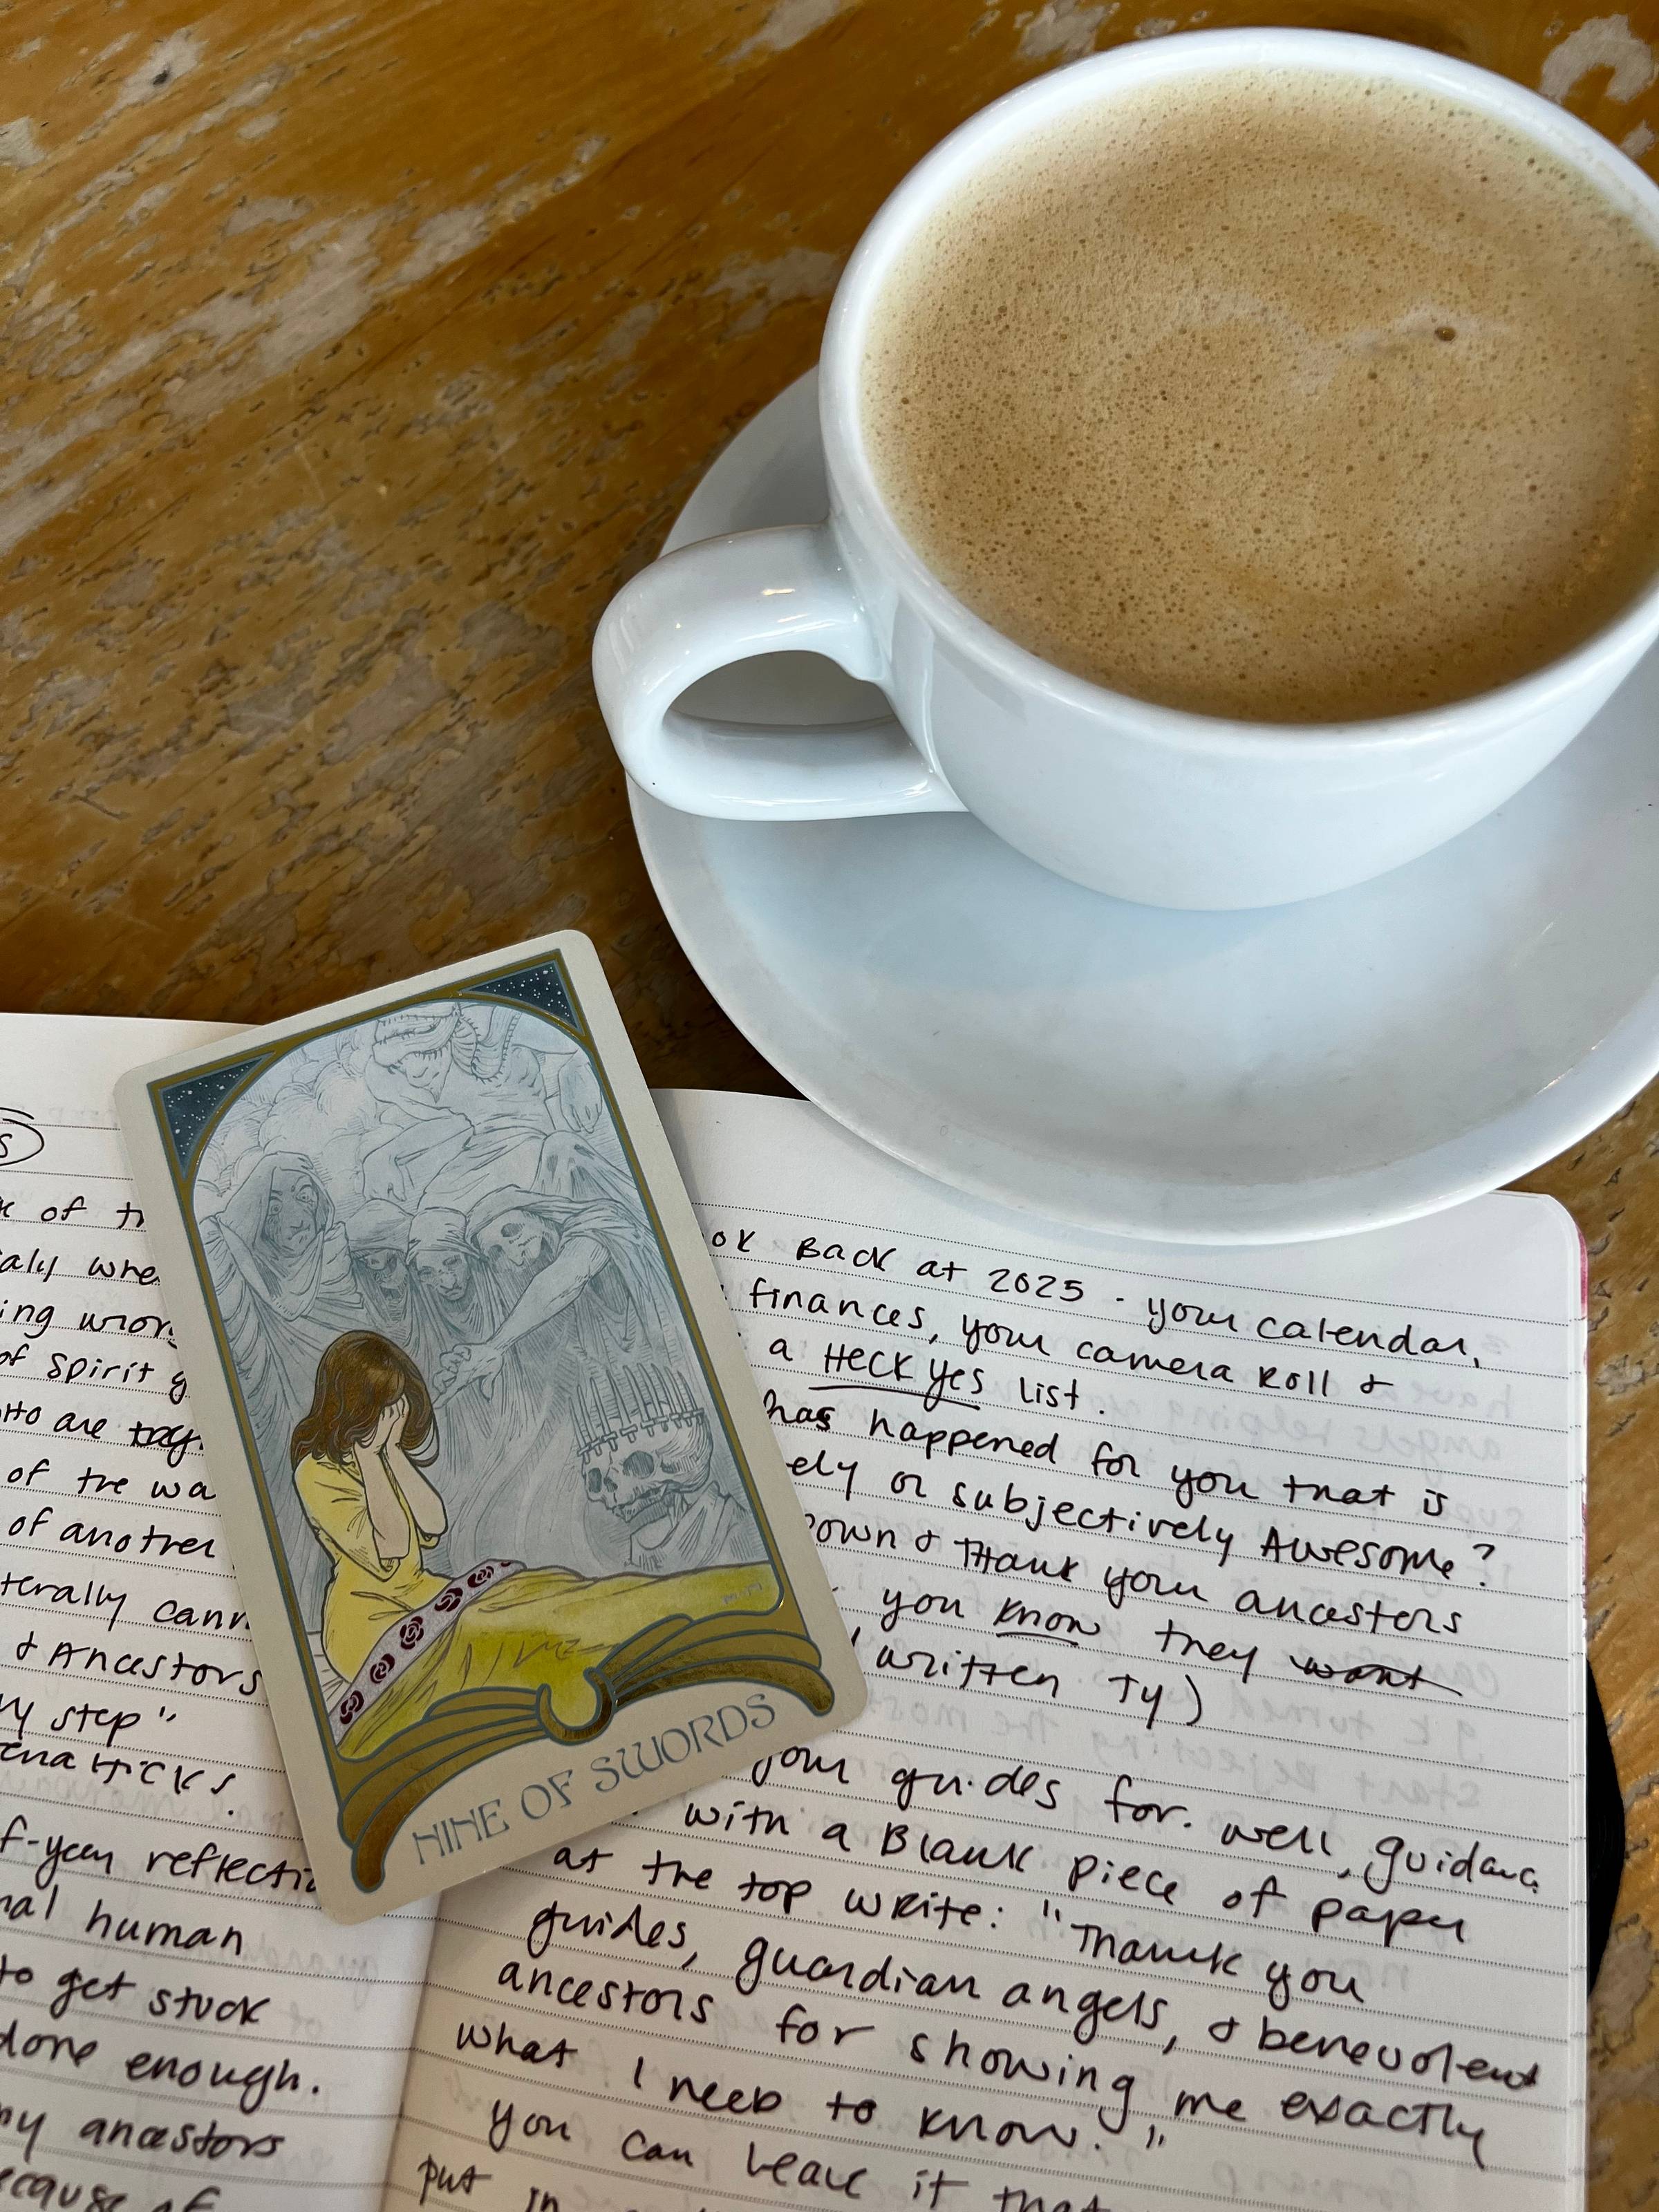 of
of spirit
who are
of the
of another
cann
& Ancestors
step"
reflecti
human
to get stuck
done enough.
my ancestors
NINE OF SWORDS
Back at 2025 - your calendar,
finances, your camera roll &
a HECK yes list.
has happened for you that is
or subjectively Awesome?
& THank your ancestors
you know they want
written TY)
your guides for. well, guidance
with a Blank piece of paper
at the top write: "Thank you
guides, guardian angels, & benevolent
ancestors for showing me exactly
what I need to know."
you can leave it that
put in